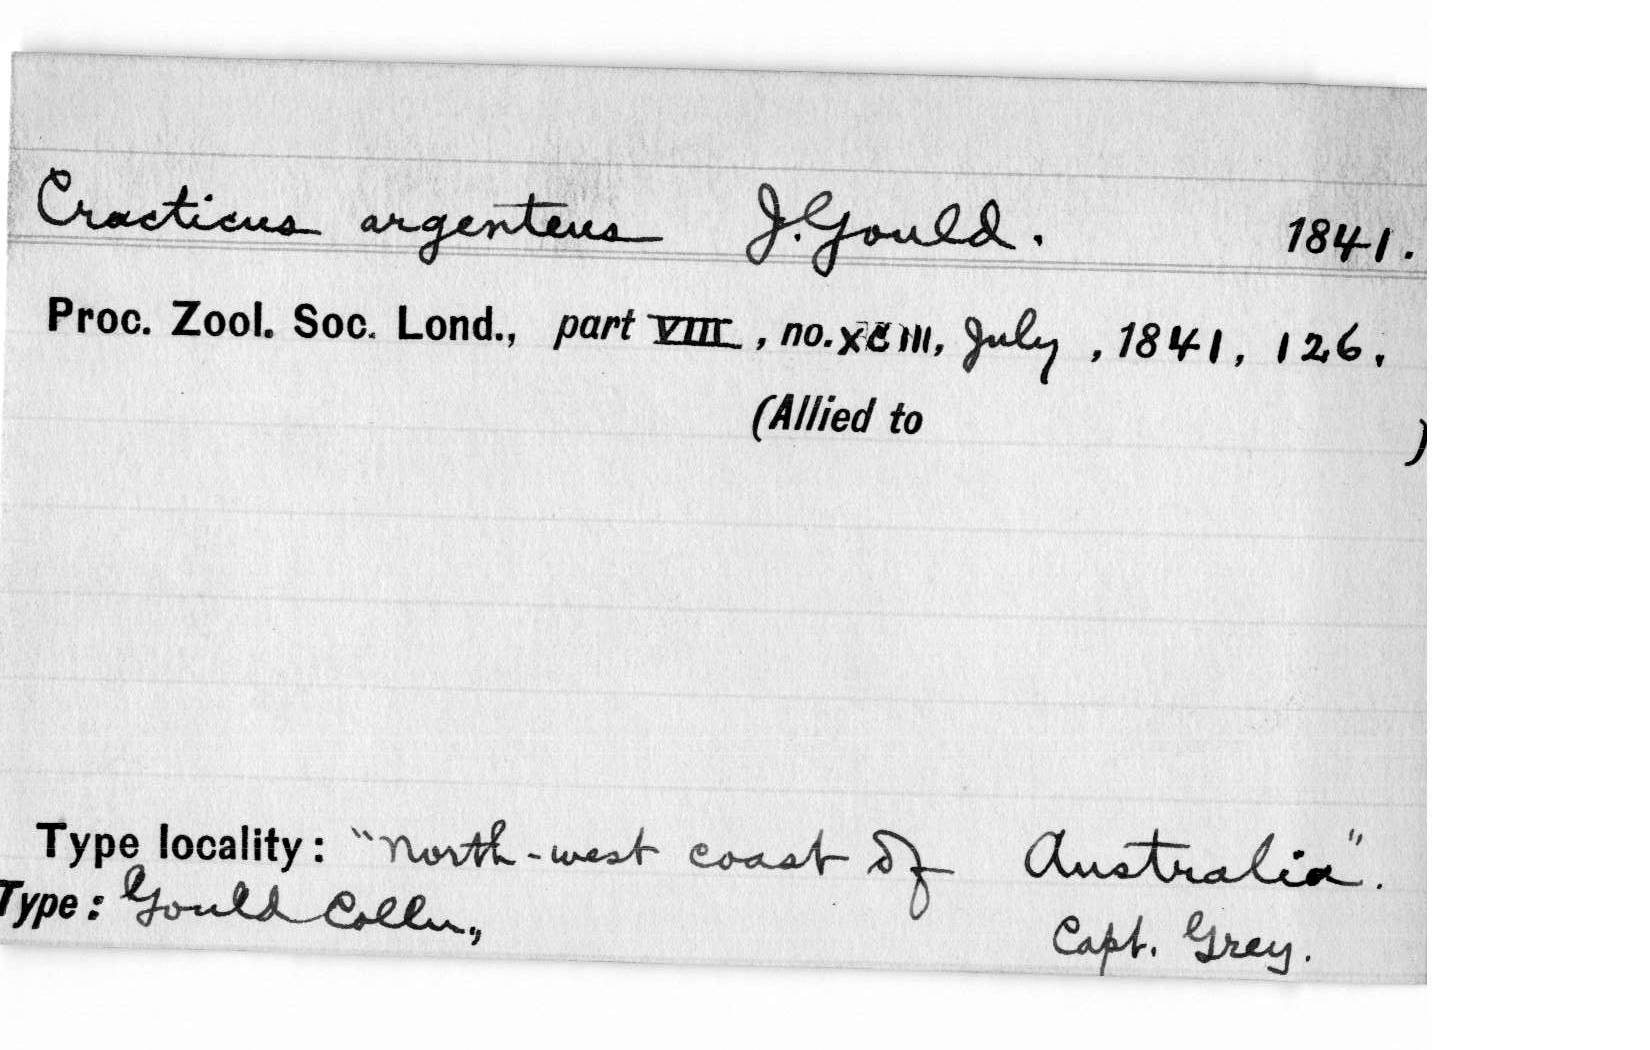 Cracticus argenteus J. Gould. 1841.
Proc. Zool. Soc. Lond., part VIII, no. XCIII, July, 1841, 126.
(Allied to )
Type locality: "north-west coast of Australia".
Type: Gould Colln., Capt. Grey.